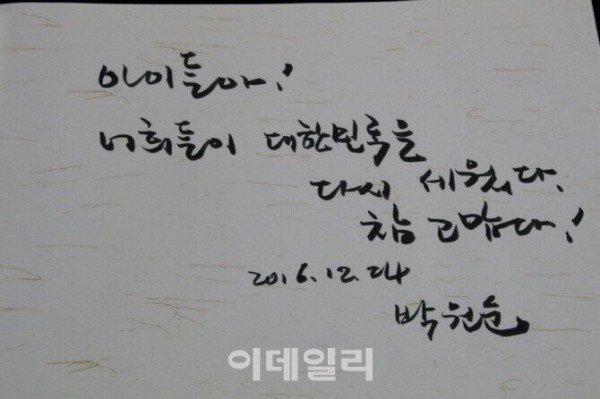 아이들아!
너희들이 대한민국을
다시 세웠다.
참 고맙다!
2016.12.24
박원순
이데일리